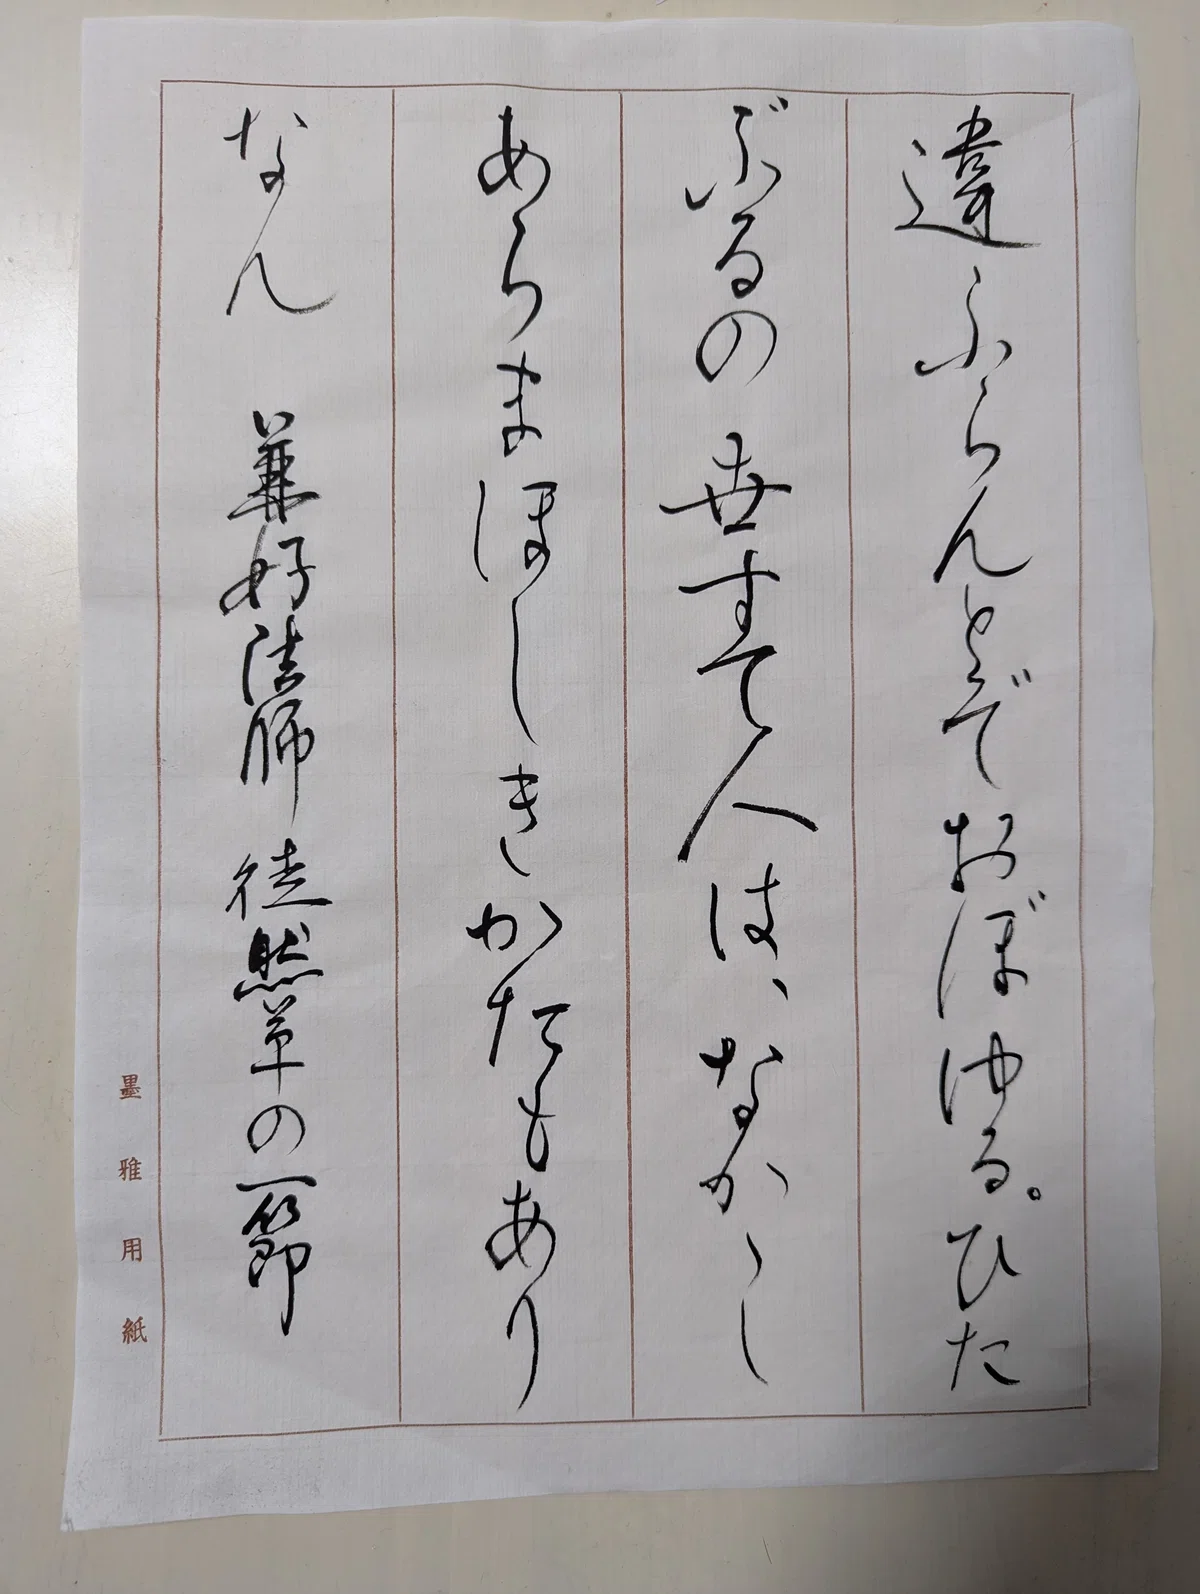 違ふらんとぞおぼゆる。ひた
ぶるの世すて人は、なかゝし
あらまほしきかたもあり
なん 兼好法師 徒然草の一節
墨雅用紙